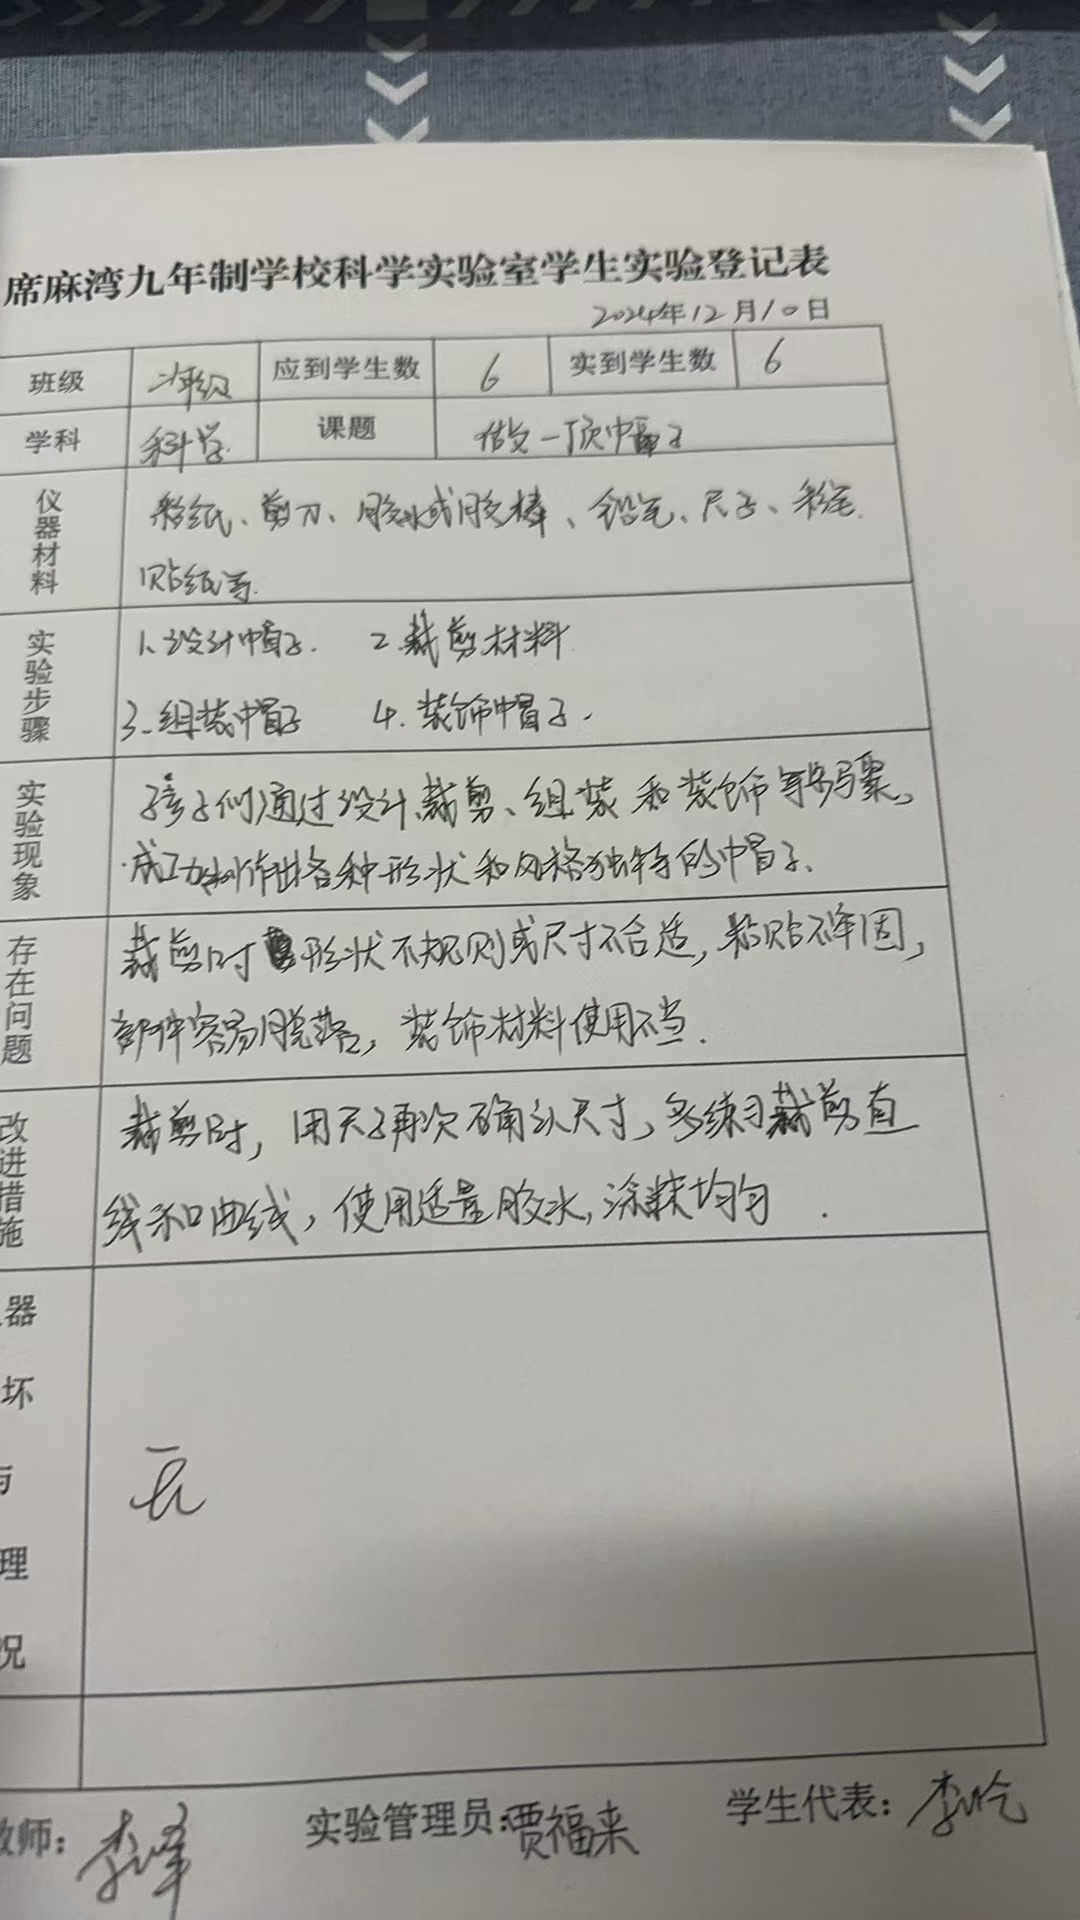 席麻湾九年制学校科学实验室学生实验登记表
2024年12月10日
班级 年级 应到学生数 6 实到学生数 6
学科 科学 课题 做一顶帽子
仪器材料
彩纸、剪刀、胶水或胶棒、铅笔、尺子、彩笔
贴纸等.
实验步骤
1、设计帽子. 2.裁剪材料
3.组装帽子 4.装饰帽子.
实验现象
孩子们通过设计、裁剪、组装和装饰等步骤,
成功制作出各种形状和风格独特的帽子.
存在问题
裁剪时形状不规则或尺寸不合适,粘贴不牢固,
部件容易脱落,装饰材料使用不当.
改进措施
裁剪时,用尺子再次确认尺寸,多练习裁剪直
线和曲线,使用适量胶水,涂抹均匀.
器
坏
与
理
况
无
教师: 实验管理员:贾福来 学生代表:李